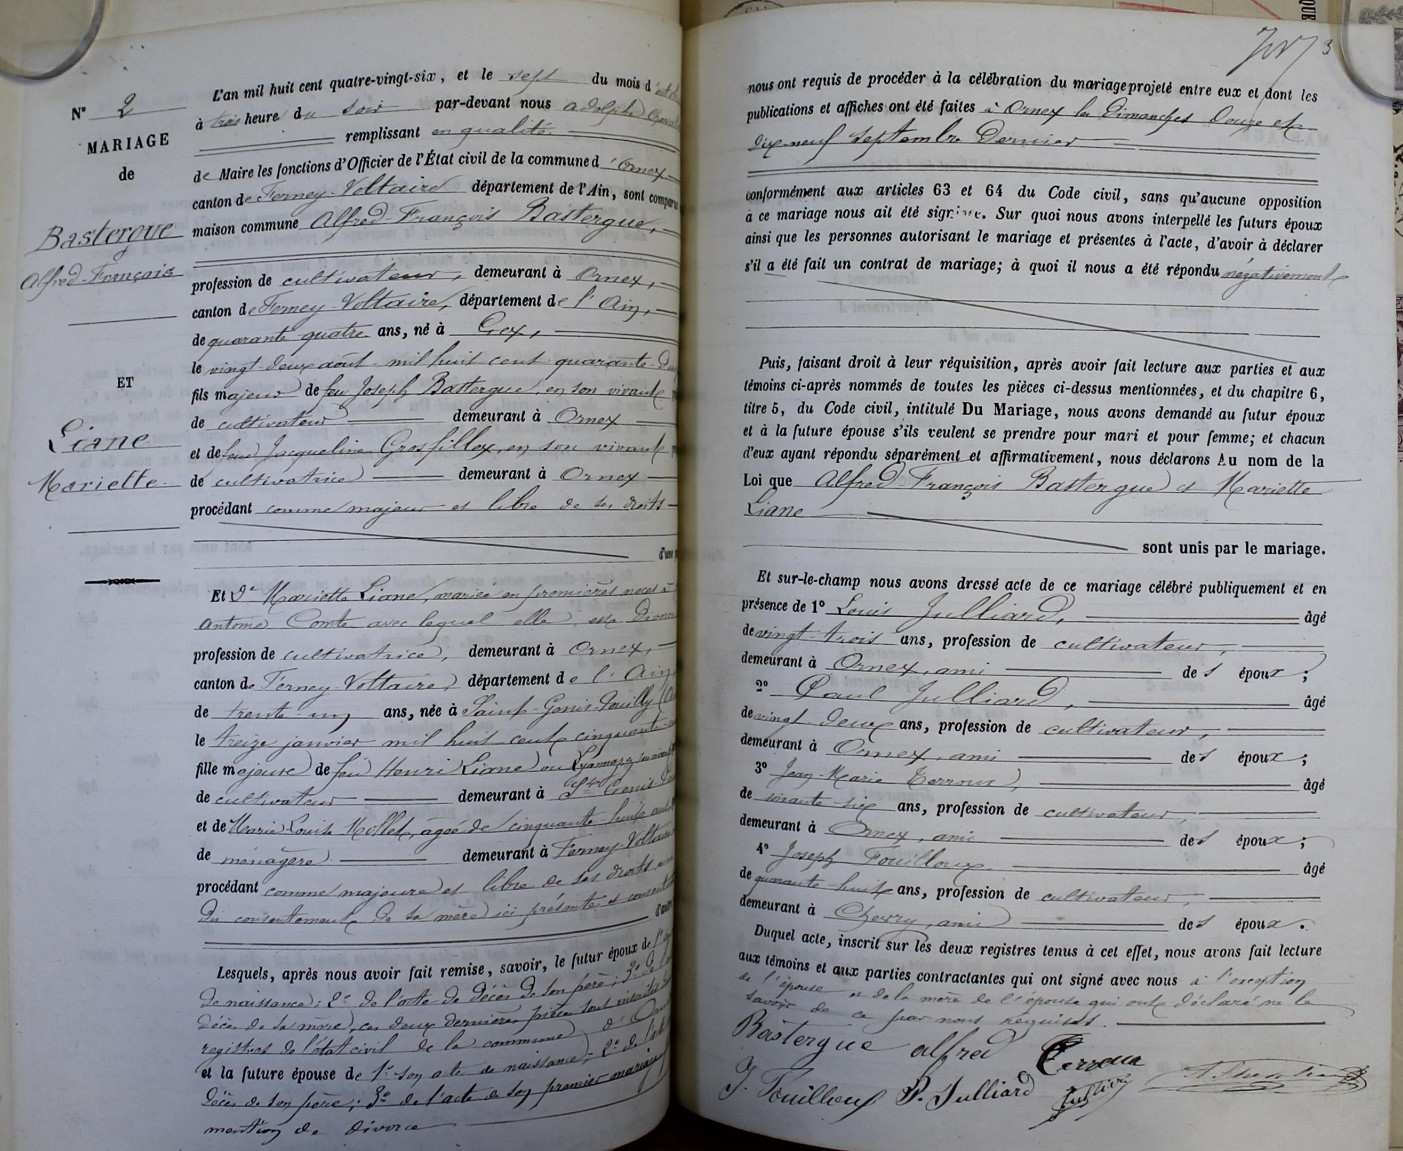 N° 2
MARIAGE
de
Bastergue
Alfred François
ET
Liane
Mariette
L'an mil huit cent quatre-vingt-six, et le sept du mois d'
à trois heure du soir par-devant nous Adolphe
remplissant en qualité
de Maire les fonctions d'Officier de l'État civil de la commune d'Ornex
canton de Ferney-Voltaire département de l'Ain, sont comparus
maison commune Alfred François Bastergue,
profession de cultivateur, demeurant à Ornex,
canton de Ferney-Voltaire, département de l'Ain,
de quarante quatre ans, né à Gex,
le vingt deux août mil huit cent quarante-deux
fils majeur de feu Joseph Bastergue, en son vivant
de cultivateur demeurant à Ornex
et de feu Jacqueline Grosfillex, en son vivant
de cultivatrice demeurant à Ornex
procédant comme majeur et libre de ses droits
d'une
Et De Mariette Liane, mariée en premières noces à
Antoine Comte avec lequel elle est
profession de cultivatrice, demeurant à Ornex,
canton de Ferney-Voltaire, département de l'Ain
de trente-un ans, née à Saint-Genis-Pouilly
le treize janvier mil huit cent cinquante
fille majeure de feu Henri Liane ou
de cultivateur demeurant à St Genis
et de Marie Louise Mollet, âgée de cinquante huit ans
de ménagère demeurant à Ferney-Voltaire
procédant comme majeure et libre de ses droits
du consentement de sa mère ici présente et
Lesquels, après nous avoir fait remise, savoir, le futur époux de l'
de naissance; 2° de l'acte de décès de son père; 3° d
décès de sa mère, ces deux dernières pièces sont
registres de l'état civil de la commune d'
et la future épouse de 1° son acte de naissance; 2° de l'
décès de son père; 3° de l'acte de son premier mariage
mention de divorce
3
nous ont requis de procéder à la célébration du mariage projeté entre eux et dont les
publications et affiches ont été faites à Ornex les Dimanches douze et
dix-neuf septembre dernier
conformément aux articles 63 et 64 du Code civil, sans qu'aucune opposition
à ce mariage nous ait été signifiée. Sur quoi nous avons interpellé les futurs époux
ainsi que les personnes autorisant le mariage et présentes à l'acte, d'avoir à déclarer
s'il a été fait un contrat de mariage; à quoi il nous a été répondu négativement
Puis, faisant droit à leur réquisition, après avoir fait lecture aux parties et aux
témoins ci-après nommés de toutes les pièces ci-dessus mentionnées, et du chapitre 6,
titre 5, du Code civil, intitulé Du Mariage, nous avons demandé au futur époux
et à la future épouse s'ils veulent se prendre pour mari et pour femme; et chacun
d'eux ayant répondu séparément et affirmativement, nous déclarons Au nom de la
Loi que Alfred François Bastergue et Mariette
Liane
sont unis par le mariage.
Et sur-le-champ nous avons dressé acte de ce mariage célébré publiquement et en
présence de 1° Louis Julliard, âgé
de vingt-trois ans, profession de cultivateur,
demeurant à Ornex, ami des époux;
2° Paul Julliard, âgé
de vingt deux ans, profession de cultivateur,
demeurant à Ornex, ami des époux;
3° Jean-Marie Terroux, âgé
de soixante-six ans, profession de cultivateur,
demeurant à Ornex, ami des époux;
4° Joseph Fouilloux âgé
de quarante-huit ans, profession de cultivateur,
demeurant à Chevry, ami des époux.
Duquel acte, inscrit sur les deux registres tenus à cet effet, nous avons fait lecture
aux témoins et aux parties contractantes qui ont signé avec nous à l'exception
de l'épouse et de la mère de l'épouse qui ont déclaré ne le
savoir de ce par nous requises.
Bastergue alfred Terroux
J. Fouilloux P. Julliard Julliard